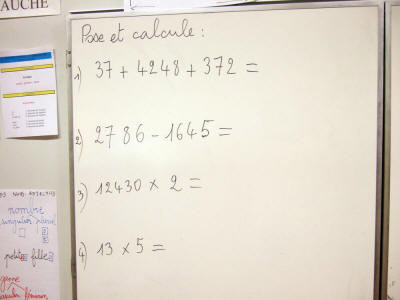 AUCHE
Pose et calcule :
1) 37 + 4248 + 372 =
2) 2786 - 1645 =
3) 12430 x 2 =
4) 13 x 5 =
nombre
singulier pluriel
petite fille
genre
féminin